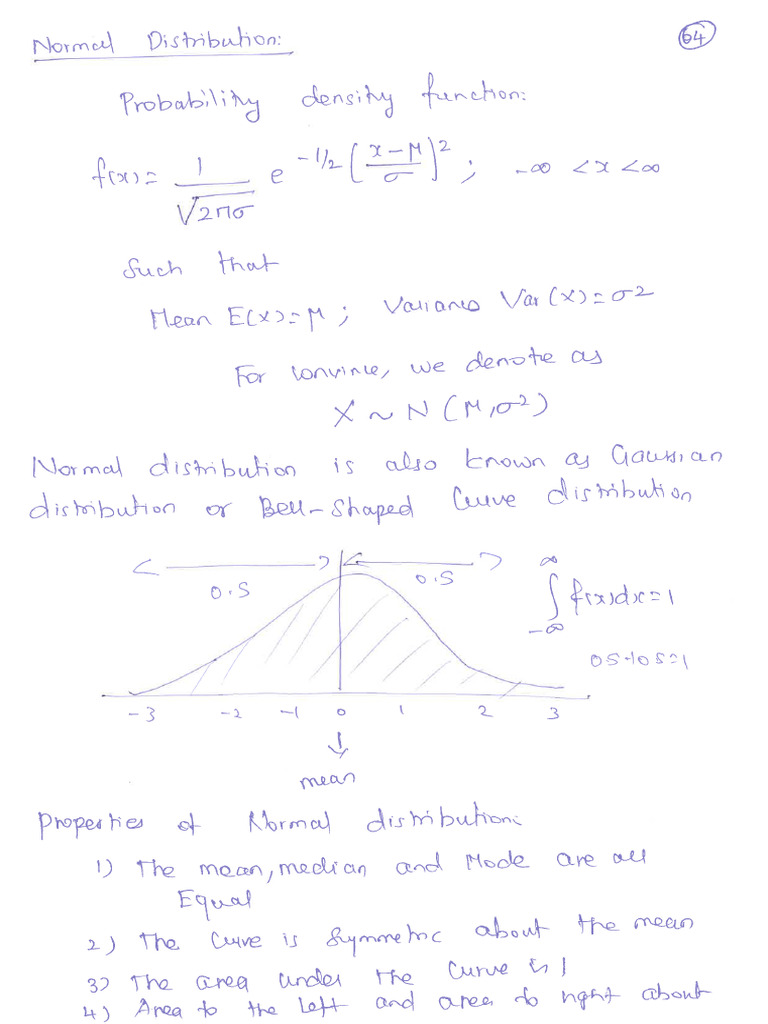 Normal Distribution: 64
Probability density function:
f(x) = 1/√2πσ e^-1/2 (x-μ/σ)^2 ; -∞ < x < ∞
Such that
Mean E(X) = μ ; Variance Var (X) = σ2
For convince, we denote as
X ~ N (μ, σ²)
Normal distribution is also known as Gaussian
distribution or Bell-Shaped Curve distribution
0.5 0.5 ∞
∫ f(x)dx = 1
-∞
0 5 + 0 5 = 1
-3 -2 -1 0 1 2 3
mean
Properties of Normal distribution:
1) The mean, median and Mode are all
Equal
2) The Curve is Symmetric about the mean
3) The area under the Curve is 1
4) Area to the Left and area to right about